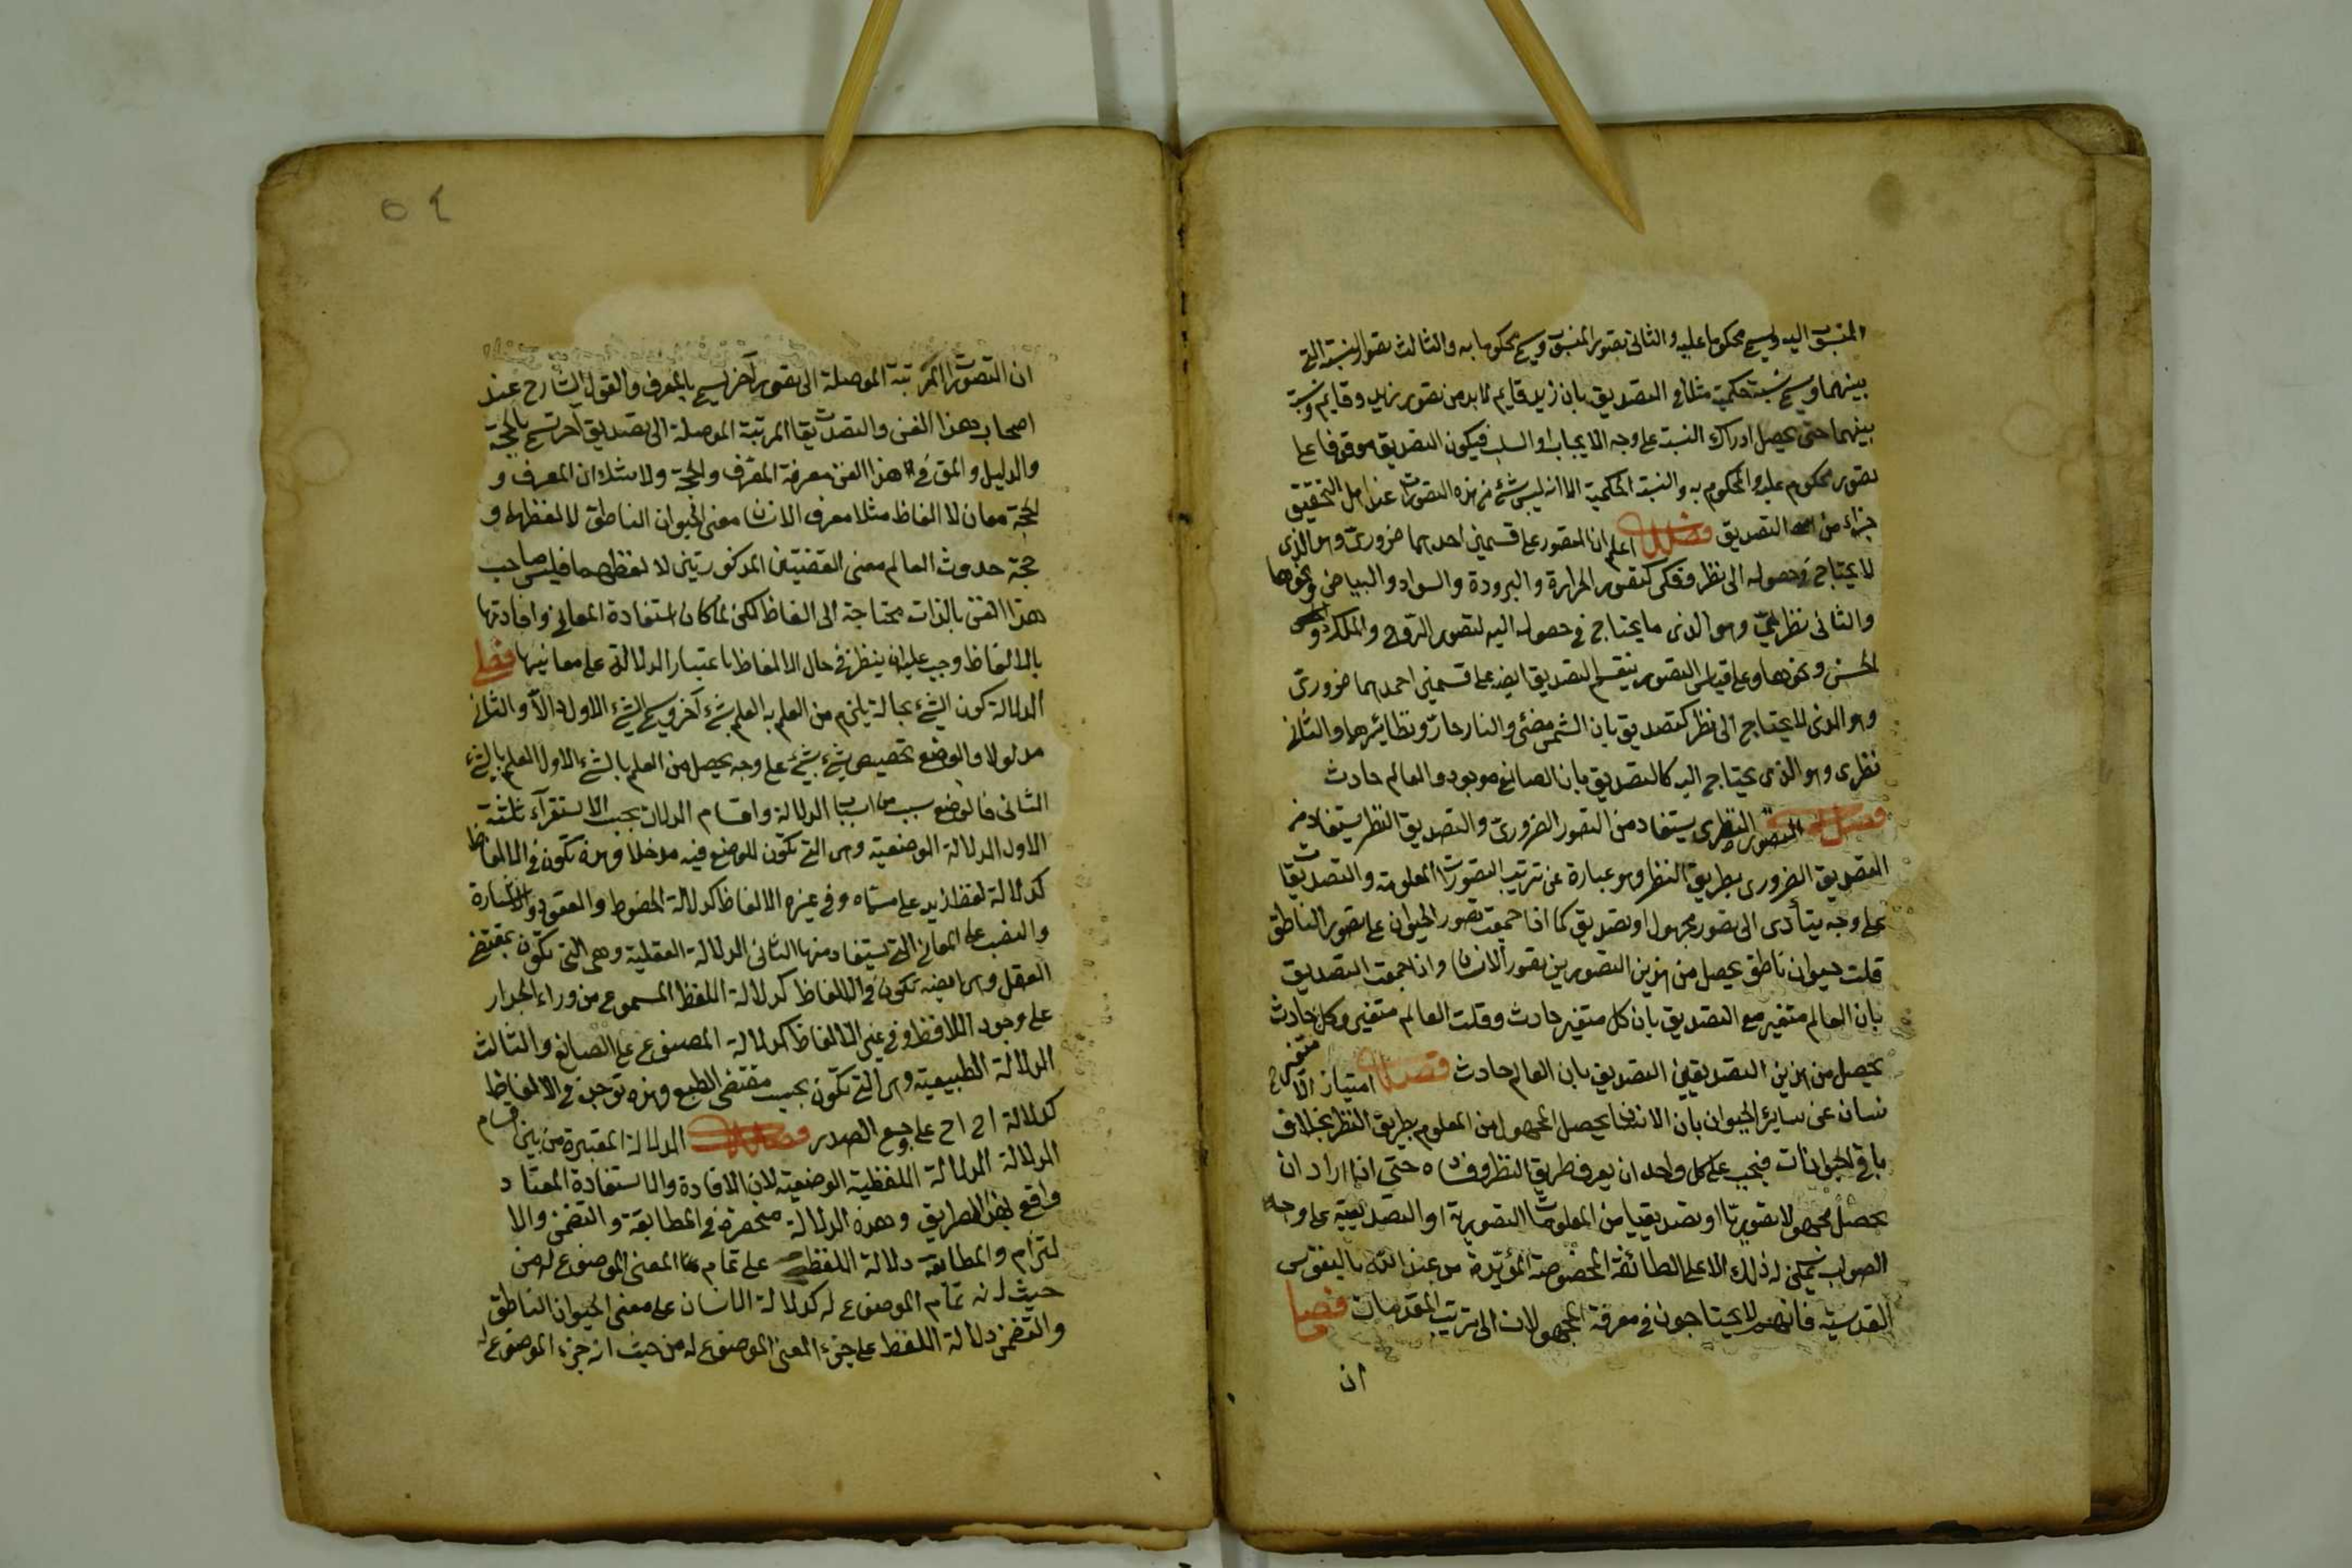 المنسوب اليه ويسمى محكوما عليه والثانى تصور المنسوب ويسمى محكوما به والثالث تصور النسبة التى
بينهما ويسمى نسبة حكمية مثلا فى التصديق بان زيد قايم لا بد من تصور زيد وقايم ونسبة
بينهما حتى يحصل ادراك النسبة على وجه الايجاب او السلب فيكون التصديق موقوفا على
تصور محكوم عليه والمحكوم به والنسبة الحكمية الا انه ليس شئ من هذه التصورات عند اهل التحقيق
جزاء من التصديق فصل اعلم ان التصور على قسمين احدهما ضرورى وهو الذى
لا يحتاج فى حصوله الى نظر وفكر كتصور الحرارة والبرودة والسواد والبياض ونحوها
والثانى نظرى وهو الذى ما يحتاج فى حصوله اليه كتصور الروح والملك و
الجن ونحوها وعلى قياس التصور ينقسم التصديق ايضه على قسمين احدهما ضرورى
وهو الذى لا يحتاج الى نظر كتصديق بان الشمس مضئ والنار حار ونظائرهما والثانى
نظرى وهو الذى يحتاج اليه كالتصديق بان الصانع موجود والعالم حادث
فصل التصور النظرى يستفاد من التصور الضرورى والتصديق النظر يستفاد من
التصديق الضرورى بطريق النظر وهو عبارة عن ترتيب التصورات المعلومة والتصديقات
على وجه يتأدى الى تصور مجهول او تصديق كما اذا جمعت تصور الحيوان على تصور الناطق
قلت حيوان ناطق يحصل من هذين التصورين تصور الانسان واذا جمعت التصديق
بان العالم متغير مع التصديق بان كل متغير حادث وقلت العالم متغير وكل متغير حادث
يحصل من هذين التصديقين التصديق بان العالم حادث فصل امتياز الا
نسان عن ساير الحيوان بان الانسان يحصل المجهول من المعلوم بطريق النظر بخلاف
باقى الحيوانات فيجب على كل واحد ان يعرف طريق النظر وفساده حتى اذا اراد ان
يحصل مجهولا تصوريا او تصديقيا من المعلومات التصورية او التصديقية على وجه
الصواب يمكن له ذلك الا على الطائفة المخصوصة المؤيدة من عند الله بالنفوس
القدسية فانهم لا يحتاجون فى معرفة المجهولات الى ترتيب المقدمات فصل
ان
٥٤
ان التصورات المرتبة الموصلة الى تصور آخر يسمى بالمعرف والقول الشارح عند
اصحاب هذا الفن والتصديقات المرتبة الموصلة الى تصديق آخر تسمى بالحجة
والدليل والمق فى هذا الفن معرفة المعرف والحجة ولا شك ان المعرف و
الحجة معان لا الفاظ مثلا معرف الانسان معنى الحيوان الناطق لا لفظهما و
حجة حدوث العالم معنى القضيتين المذكورتين لا لفظهما فليس صاحب
هذا الفن بالذات محتاجة الى الفاظ لكن لما كان استفادة المعانى وافادتها
بالالفاظ وجب عليه ان ينظر فى حال الالفاظ باعتبار الدلالة على معانيها فصل
الدلالة كون الشئ بحالة يلزم من العلم به العلم بشئ آخر ويسمى الشئ الاول دالا والثانى
مدلولا والوضع تخصيص شئ بشئ على وجه يحصل من العلم بالشئ الاول العلم بالشئ
الثانى فالوضع سبب من اسباب الدلالة واقسام الدلالة بحسب الاستقرآء ثلثة
الاول الدلالة الوضعية وهى التى تكون للوضع فيه مدخلا وهذه تكون فى الالفاظ
كدلالة لفظ زيد على مسماه وفى غيره الالفاظ كدلالة الخطوط والعقود والاشارة
والنصب على المعانى التى يستفاد منها الثانى الدلالة العقلية وهى التى تكون بمقتضى
العقل وهى ايضه تكون فى الالفاظ كدلالة اللفظ المسموع من وراء الجدار
على وجود اللافظ وفى غير الالفاظ كدلالة المصنوع على الصانع والثالث
الدلالة الطبيعية وهى التى تكون بحسب مقتضى الطبع وهذه توجد فى الالفاظ
كدلالة اح اح على وجع الصدر فصل الدلالة المعتبرة من بين اقسام
الدلالة الدلالة اللفظية الوضعية لان الافادة والاستفادة المعتاد
واقع بهذا الطريق وهذه الدلالة منحصرة فى المطابقة والتضمن والا
لتزام والمطابقة دلالة اللفظ على تمام المعنى الموضوع له من
حيث انه تمام الموضوع له كدلالة الانسان على معنى الحيوان الناطق
والتضمن دلالة اللفظ على جزء المعنى الموضوع له من حيث انه جزء الموضوع له